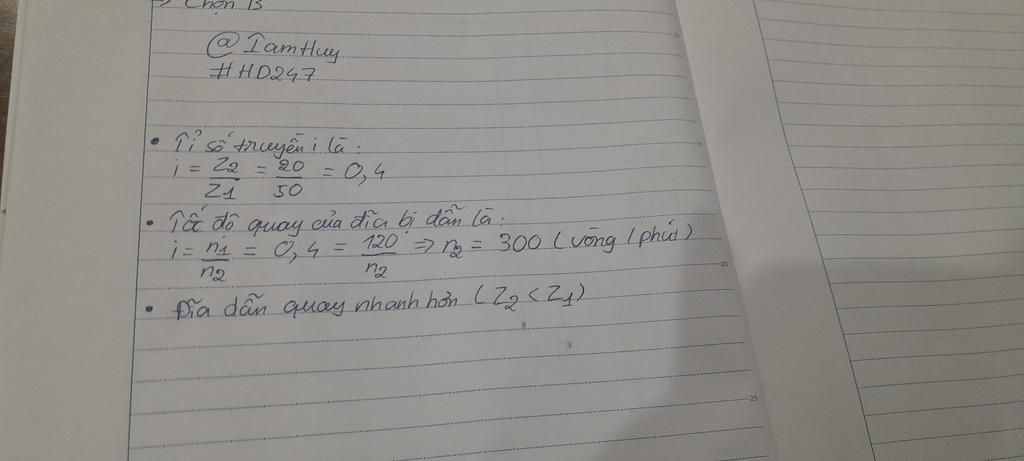 => Chọn B
@IamHuy
#HD247
• Tỉ số truyền i là:
i = Z2/Z1 = 20/50 = 0,4
• Tốc độ quay của đĩa bị dẫn là:
i = n1/n2 = 0,4 = 120/n2 => n2 = 300 (vòng/phút)
• Đĩa dẫn quay nhanh hơn (Z2 < Z1)
15
20
25